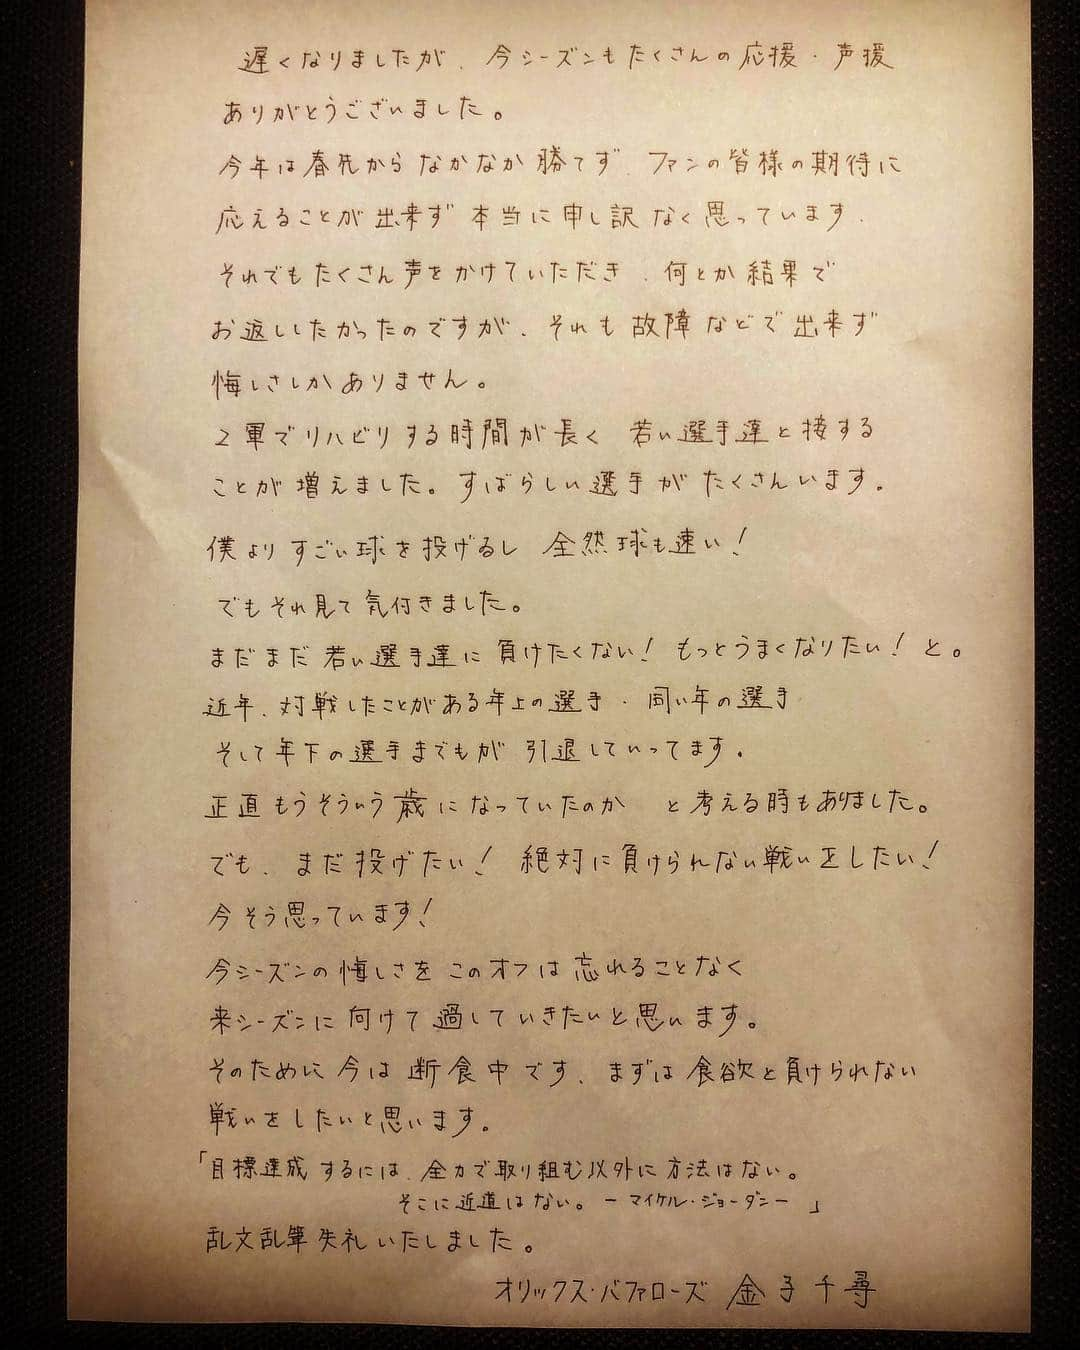 遅くなりましたが、今シーズンもたくさんの応援・声援
ありがとうございました。
今年は春先からなかなか勝てず、ファンの皆様の期待に
応えることが出来ず本当に申し訳なく思っています、
それでもたくさん声をかけていただき、何とか結果で
お返ししたかったのですが、それも故障などで出来ず
悔しさしかありません。
2軍でリハビリする時間が長く 若い選手達と接する
ことが増えました。すばらしい選手がたくさんいます。
僕よりすごい球を投げるし 全然球も速い！
でもそれ見て気付きました。
まだまだ若い選手達に負けたくない！もっとうまくなりたい！と。
近年、対戦したことがある年上の選手・同い年の選手
そして年下の選手までもが引退していってます。
正直もうそういう歳になっていたのか と考える時もありました。
でも、まだ投げたい！絶対に負けられない戦いをしたい！
今そう思っています！
今シーズンの悔しさをこのオフは忘れることなく
来シーズンに向けて過していきたいと思います。
そのために今は断食中です、まずは食欲と負けられない
戦いをしたいと思います。
「目標達成するには、全力で取り組む以外に方法はない。
そこに近道はない。ーマイケル・ジョーダンー」
乱文乱筆失礼いたしました。
オリックス・バファローズ 金子千尋